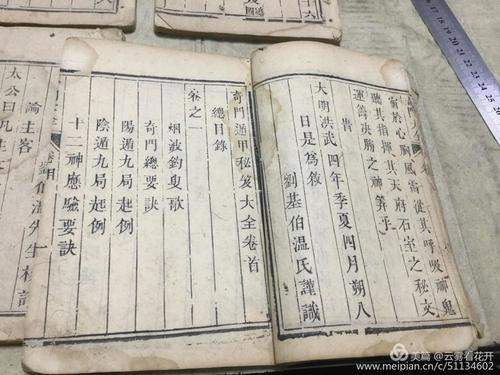 於心胸風雷從其呼吸神鬼
聽其指揮其天府石室之秘文
運籌決勝之神算乎
旹
大明洪武四年季夏四月朔八
日是爲敘
劉基伯温氏謹識
奇門遁甲秘笈大全卷首
總目錄
卷之一
烟波釣叟歌
奇門總要訣
陽遁九局起例
陰遁九局起例
十二神應驗要訣
伯温先生秘
論主客
太公曰凡
美篇 @云雾看花开
www.meipian.cn/51134602